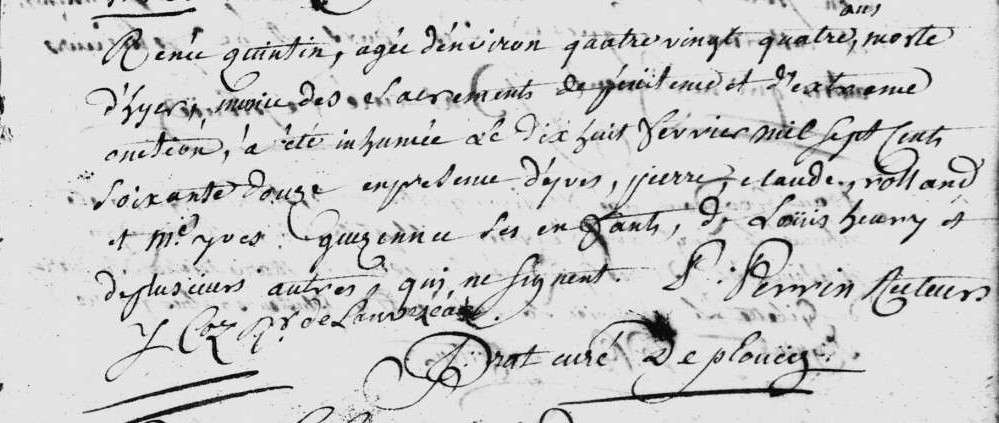 ans
Renée quintin, agée d'énviron quatre vingt quatre, morte
d'hyer, munie des sacrements de pénitence et d'extreme
onction, à été inhumée Le dix huit fevrier mil sept Cents
Soixante douze en presence d'yves, pierre, claude, rolland
et M.e yves guezennec Ses enfants, de Loüis henry et
de plusieurs autres, qui ne signent. P. Perrin Recteurs
Y Coz p.r de Lanvezéac.
Prat curé De plouëc